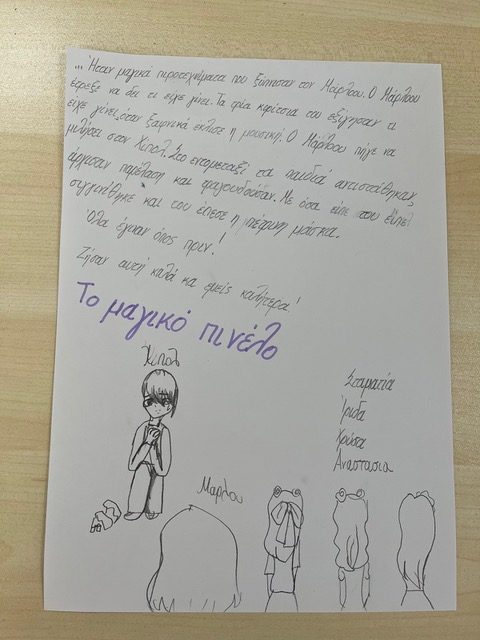 ... Ήταν μαγικά πυροτεχνήματα που ξύπνησαν τον Μάρλου. Ο Μάρλου
έτρεξε να δει τι είχε γίνει. Τα τρία κορίτσια του εξήγησαν τι
είχε γίνει, όταν ξαφνικά έκλεισε η μουσική. Ο Μάρλου πήγε να
μιλήσει στον Χιπολ. Στο εντομεταξύ τα παιδιά αντιστάθηκαν,
άρχισαν παρέλαση και τραγουδούσαν. Με όσα είπε του
συγκινήθηκε και του έπεσε η μάσκα.
Όλα έγιναν όπος πριν!
Ζήσαν αυτή καλά κα εμείς καλήτερα!
Το μαγικό πινέλο
Χιπολ
Σταματία
Ίριδα
Χρύσα
Αναστασια
Μαρλου